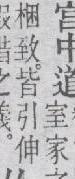 宫中道
室家
梱致。皆引伸
之
義。